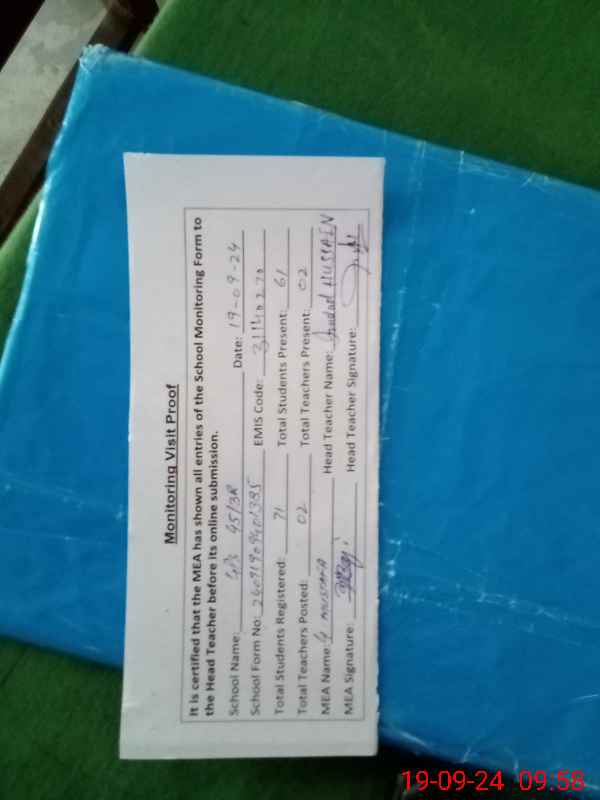 Monitoring Visit Proof
It is certified that the MEA has shown all entries of the School Monitoring Form to
the Head Teacher before its online submission.
School Name: GPS 45/3R Date: 19-09-24
School Form No: EMIS Code: 31140270
Total Students Registered: 71 Total Students Present: 61
Total Teachers Posted: 02 Total Teachers Present: 02
MEA Name: G MUSTAFA Head Teacher Name: HUSSAIN
MEA Signature: Head Teacher Signature:
19-09-24 09:58